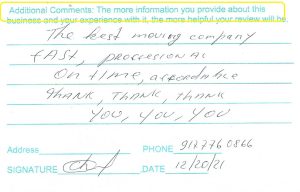 Additional Comments: The more information you provide about this
business and your experience with it, the more helpful your review will be.
The best moving company
fast, proccesional
on time, affordable
thank, thank, thank
you, you, you
Address PHONE 917 776 0866
SIGNATURE DATE 12/20/21